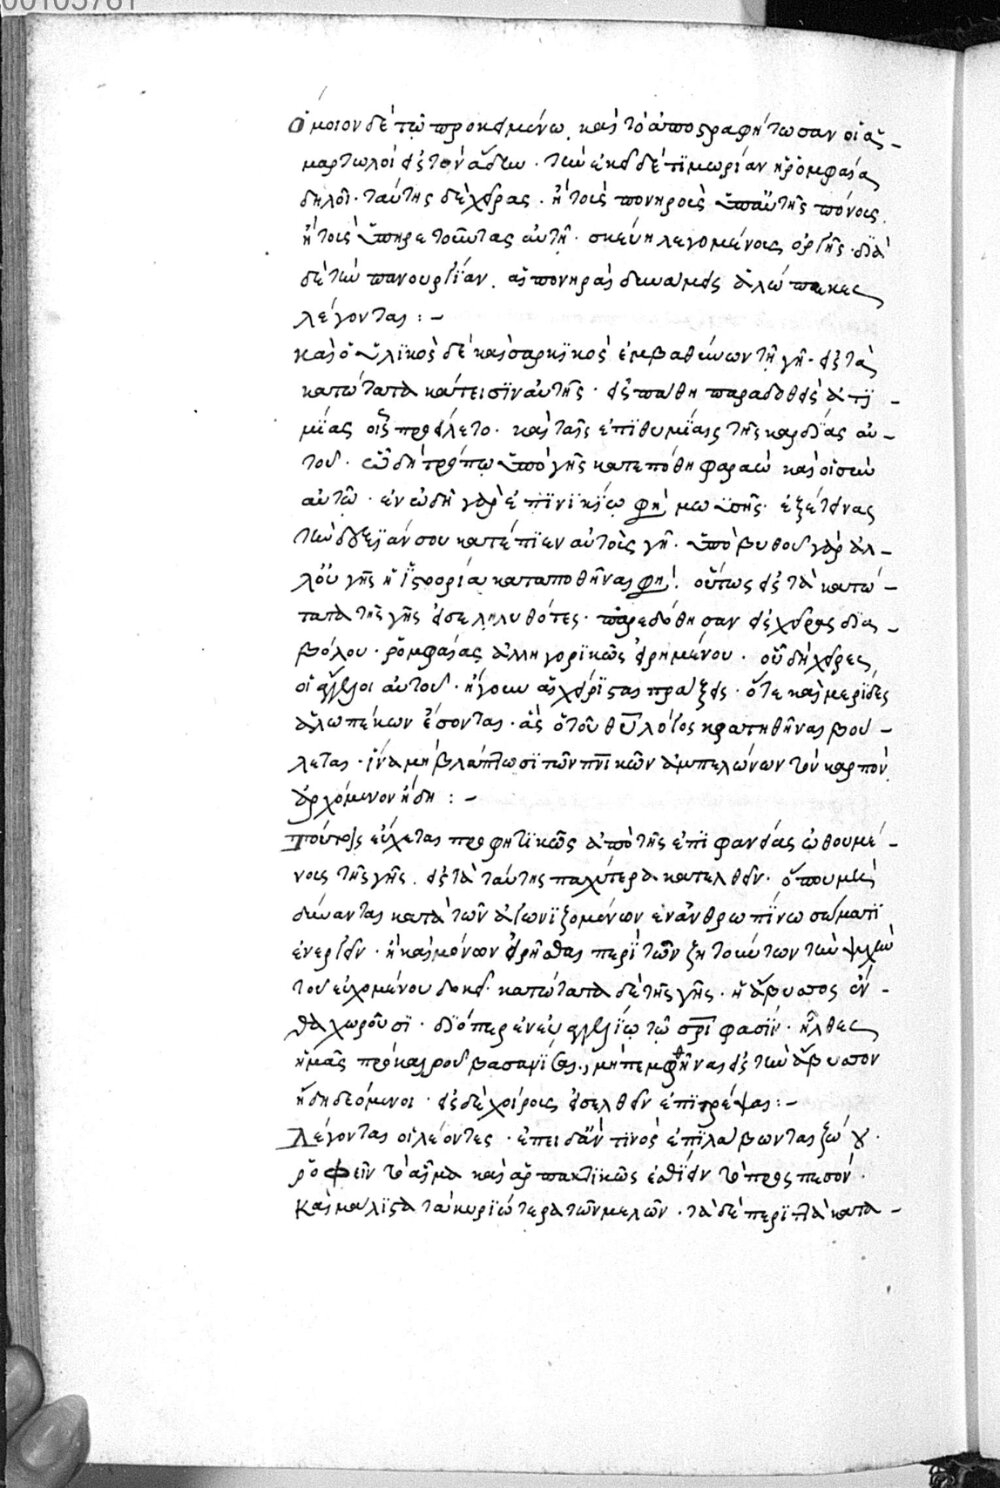 00103781
Ὅμοιον δὲ τῷ προκειμένῳ, καὶ τὸ ἀποστραφήτωσαν οἱ ἁ-
μαρτωλοὶ εἰς τὸν ἅδην · τὴν ἐκεῖ δὲ τιμωρίαν ἡ ῥομφαία
δηλοῖ · ταύτης δὲ χεῖρας · ἢ τοὺς πονηροὺς ὑπ' αὐτῆς πόνους
ἢ τοὺς ὑπηρετοῦντας αὐτῇ · σκεύη λεγομένους ὀργῆς · διὰ
δὲ τὴν πανουργίαν · αἱ πονηραὶ δυνάμεις ἀλώπεκες
λέγονται : –
καὶ ὁ ὑλικὸς δὲ καὶ σαρκικὸς ἐμβαθύνων τῇ γῇ · εἰς τὰ
κατώτατα κάτεισιν αὐτῆς · εἰς πάθη παραδοθεὶς ἀτι-
μίας οἷς προείλετο · καὶ ταῖς ἐπιθυμίαις τῆς καρδίας αὐ-
τοῦ · ᾧ δὴ τρόπῳ ὑπὸ γῆς κατεπόθη φαραὼ καὶ οἱ σὺν
αὐτῷ · ἐν ᾠδῇ γὰρ ἐπινικίῳ φη, μωϋσῆς · ἐξέτεινας
τὴν δεξιάν σου κατέπιεν αὐτοὺς γῆ · ὑπὸ βυθοῦ γὰρ ἀλ-
λ' οὐ γῆς ἡ ἱστορία καταποθῆναι φη, · οὕτως εἰς τὰ κατώ-
τατα τῆς γῆς εἰσεληλυθότες · παρεδόθησαν εἰς χεῖρας δια-
βόλου · ῥομφαίας ἀλληγορικῶς εἰρημένου · οὗ δὴ χεῖρες
οἱ ἄγγελοι αὐτοῦ · ἤγουν αἱ χείρισται πράξεις · ὅτε καὶ μερίδες
ἀλωπέκων ἔσονται · ἃς ὁ τοῦ θυ λόγος κρατηθῆναι βού-
λεται · ἵνα μὴ βλάπτωσι τῶν πνικῶν ἀμπελώνων τὸν καρπὸν
ἀρχόμενον ἤδη : –
Τούτοις εὔχεται προφητικῶς ἀπὸ τῆς ἐπιφανείας ὠθουμέ-
νους τῆς γῆς · εἰς τὰ ταύτης παχύτερα κατελθεῖν · ὅπου μὴ
δύνανται κατὰ τῶν ἀγωνιζομένων ἐν ἀνθρωπίνῳ σώματι
ἐνεργεῖν · ἢ καὶ μόνων εἰρῆσθαι περὶ τῶν ζητούντων τὴν ψυχὴν
τοῦ εὐχομένου δοκεῖ · κατώτατα δὲ τῆς γῆς · ἡ ἄβυσσος ἔν-
θα χωροῦσι · διόπερ ἐν εὐαγγελίῳ τῷ σρι φασίν · ἦλθες
ἡμᾶς πρὸ καιροῦ βασανίσαι, μὴ πεμφθῆναι εἰς τὴν ἄβυσσον
ἤδη δεόμενοι · εἰς δὲ χοίρους εἰσελθεῖν ἐπιτρέψαι : –
Λέγονται οἱ λέοντες · ἐπειδάν τινος ἐπιλάβωνται ζώου ·
ῥοφεῖν τὸ αἷμα καὶ ἁρπακτικῶς ἐσθίειν τὸ προσπεσόν ·
Καὶ μάλιστα τὰ κυριώτερα τῶν μελῶν · τὰ δὲ περὶ τὰ κατα-